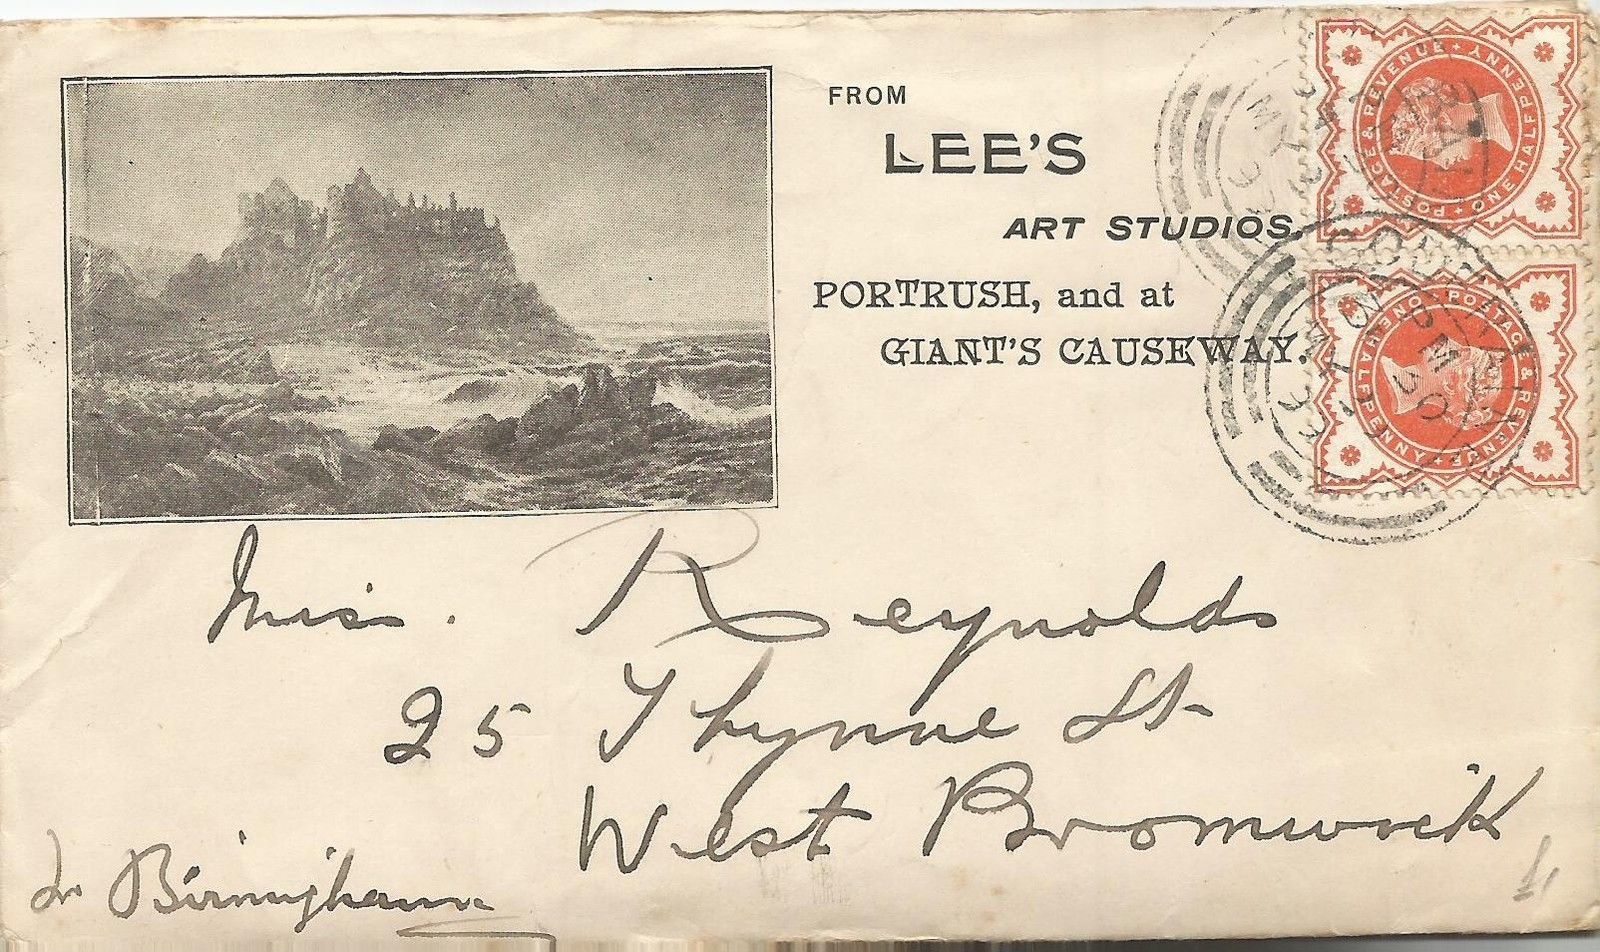 FROM
LEE'S
ART STUDIOS,
PORTRUSH, and at
GIANT'S CAUSEWAY.
POSTAGE & REVENUE
ONE HALFPENNY
POSTAGE & REVENUE
ONE HALFPENNY
MY 3
93
PM
Miss. Reynolds
25 Thynne St.
West Bromwick
Nr Birmingham